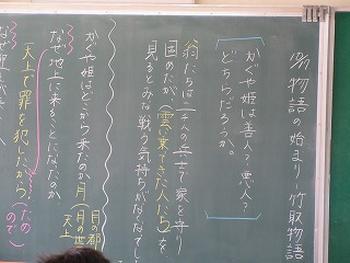 10/17 物語の始まり―竹取物語
かぐや姫は善人？悪人？
どちらだろうか。
翁たちは、二千人の兵士で家を守り
固めたが、(雲に乗ってきた人たち)を
見るとみな戦う気持ちがなくなってし
かぐや姫はどこから来たのか 月(月の都
月の世
天上
なぜ地上に来ることになったのか
天上で罪を犯したから。(ための
ので)
なぜ